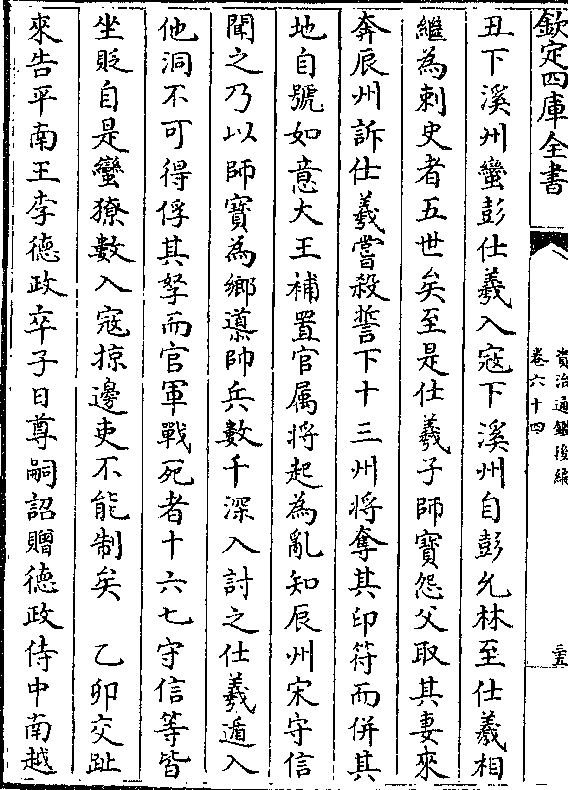 欽定四庫全書
資治通鑑後編
卷六十四
三五
丑下溪州蠻彭仕羲入寇下溪州自彭允林至仕羲相
繼為刺史者五世矣至是仕羲子師寳怨父取其妻來
奔辰州訴仕羲嘗殺誓下十三州將奪其印符而併其
地自號如意大王補置官属將起為亂知辰州宋守信
聞之乃以師寳為鄉導帥兵數千深入討之仕羲遁入
他洞不可得俘其孥而官軍戰死者十六七守信等皆
坐貶自是蠻獠數入寇掠邊吏不能制矣　乙卯交趾
來告平南王李德政卒子日尊嗣詔贈德政侍中南越